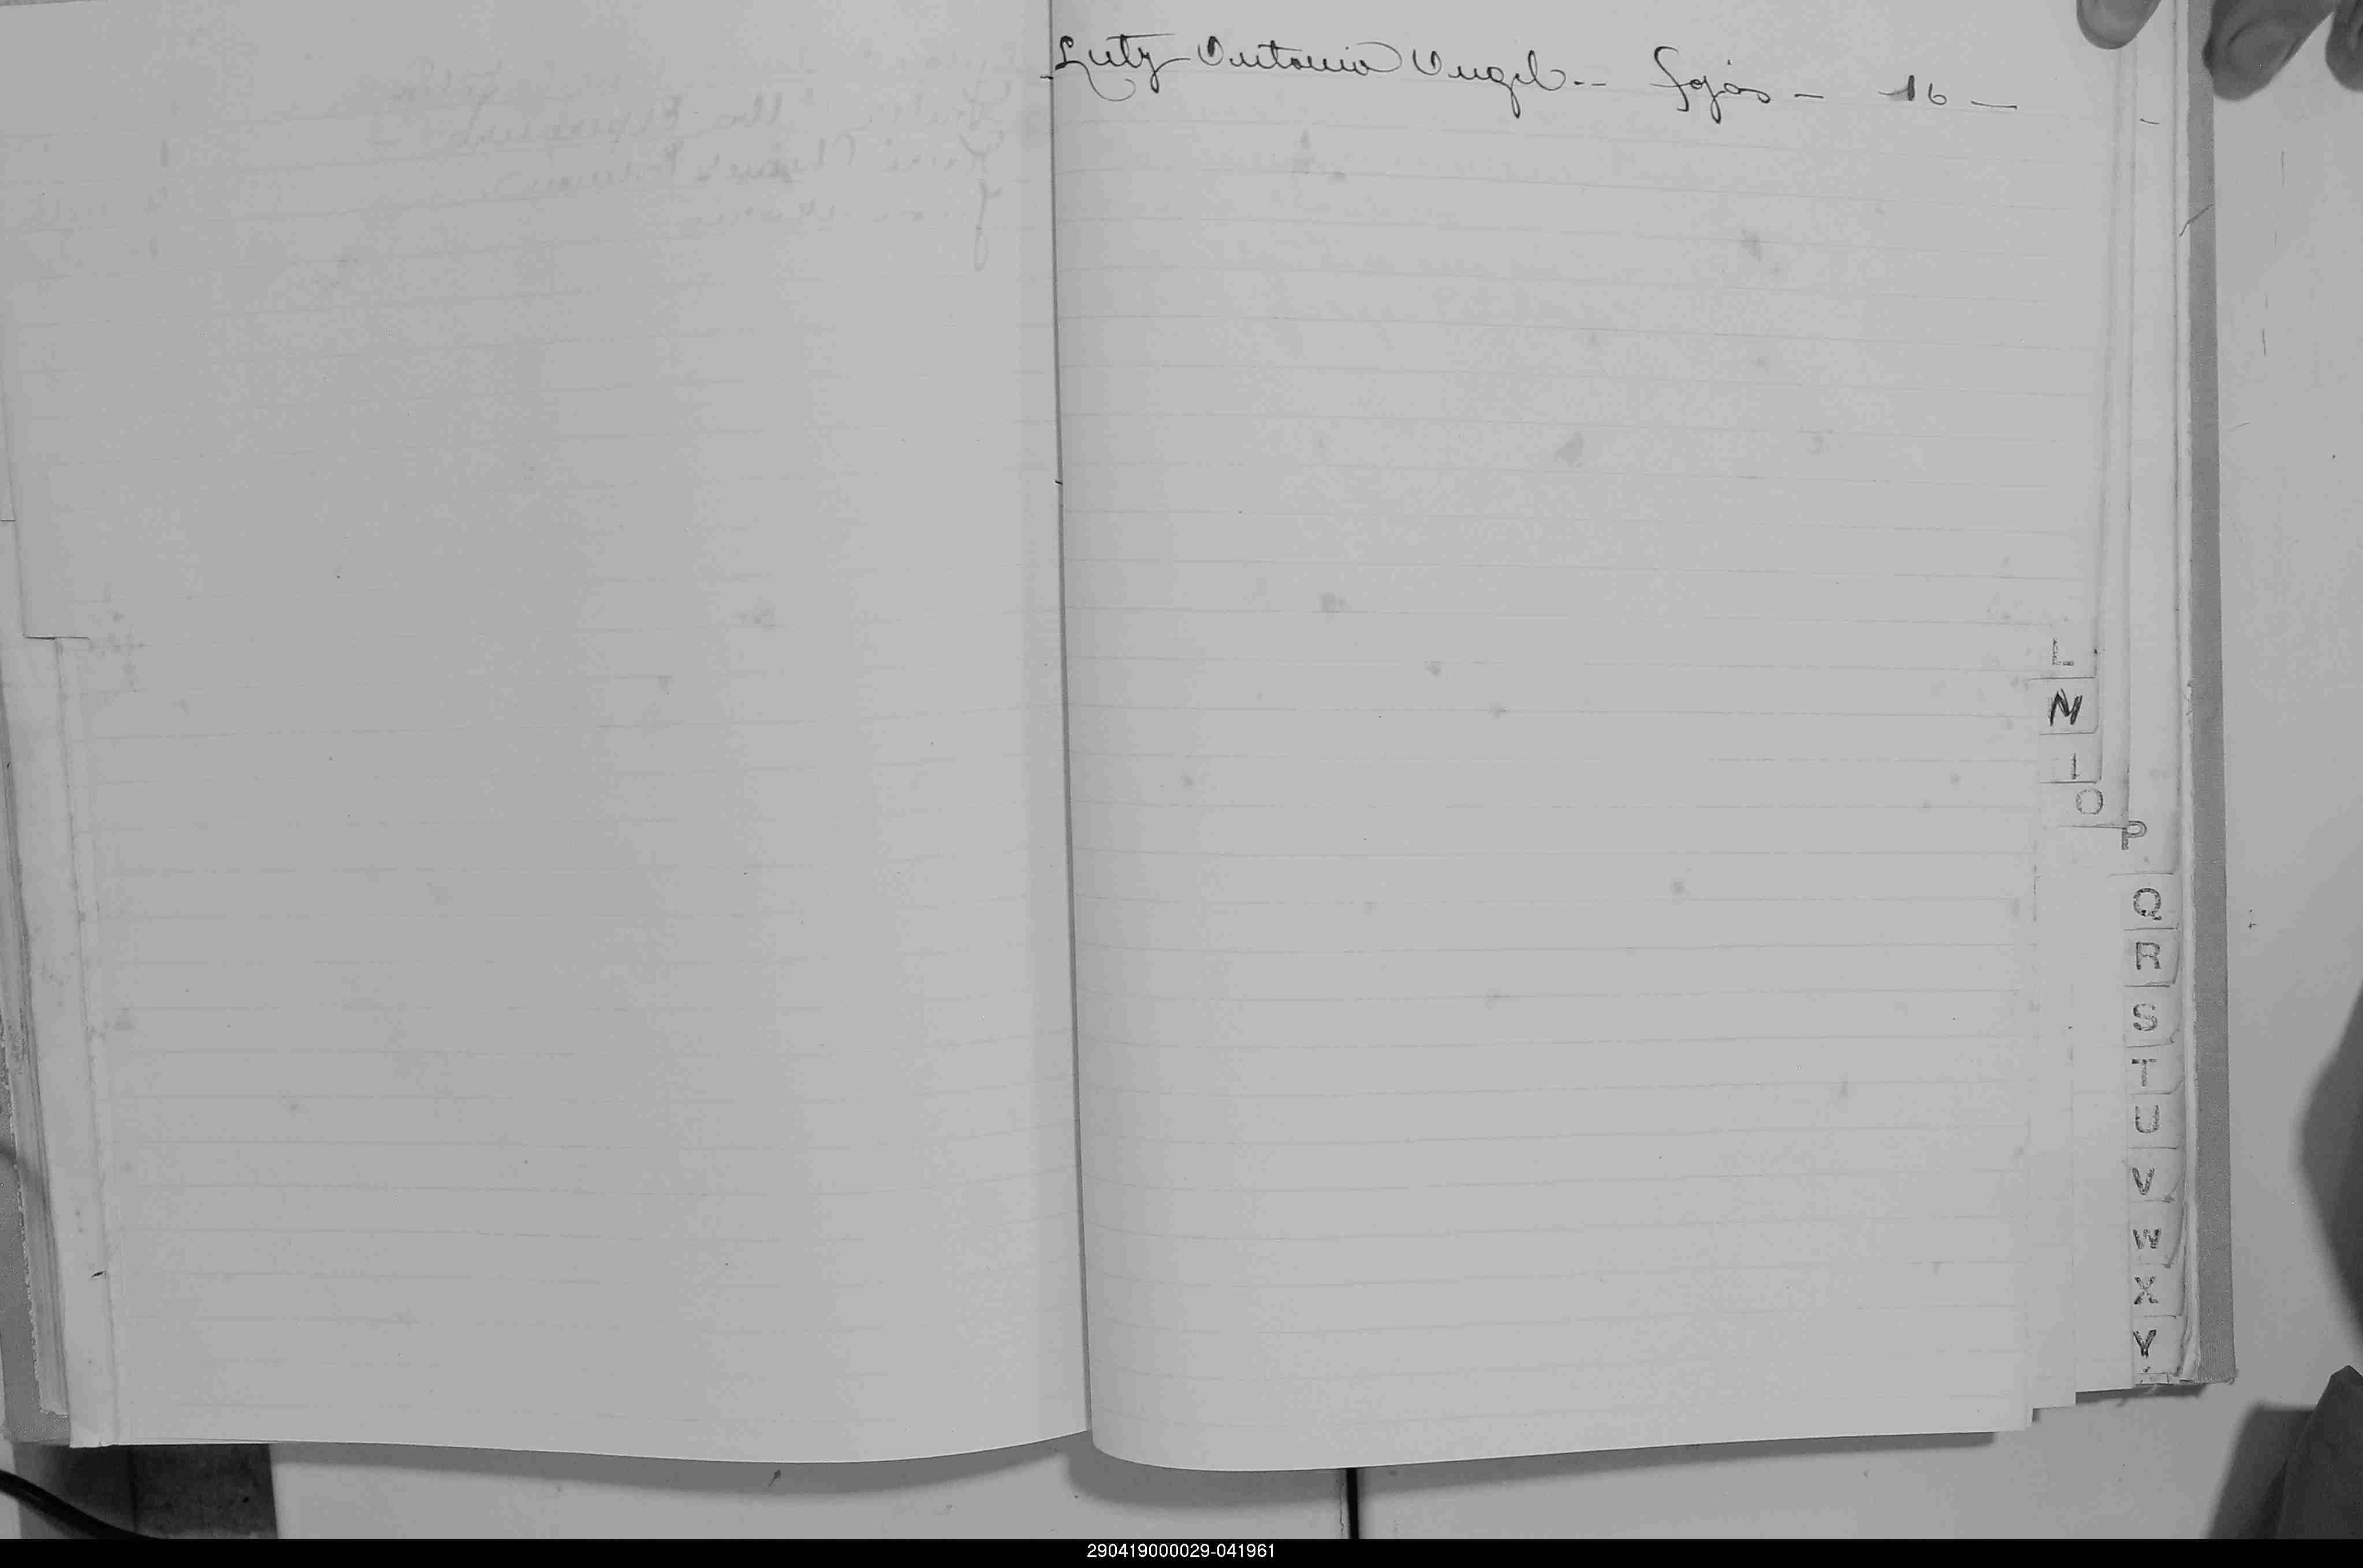 Luty Antonio Angel -- fojas - 16 -
L
N
I
O
P
Q
R
S
T
U
V
W
X
Y
290419000029-041961